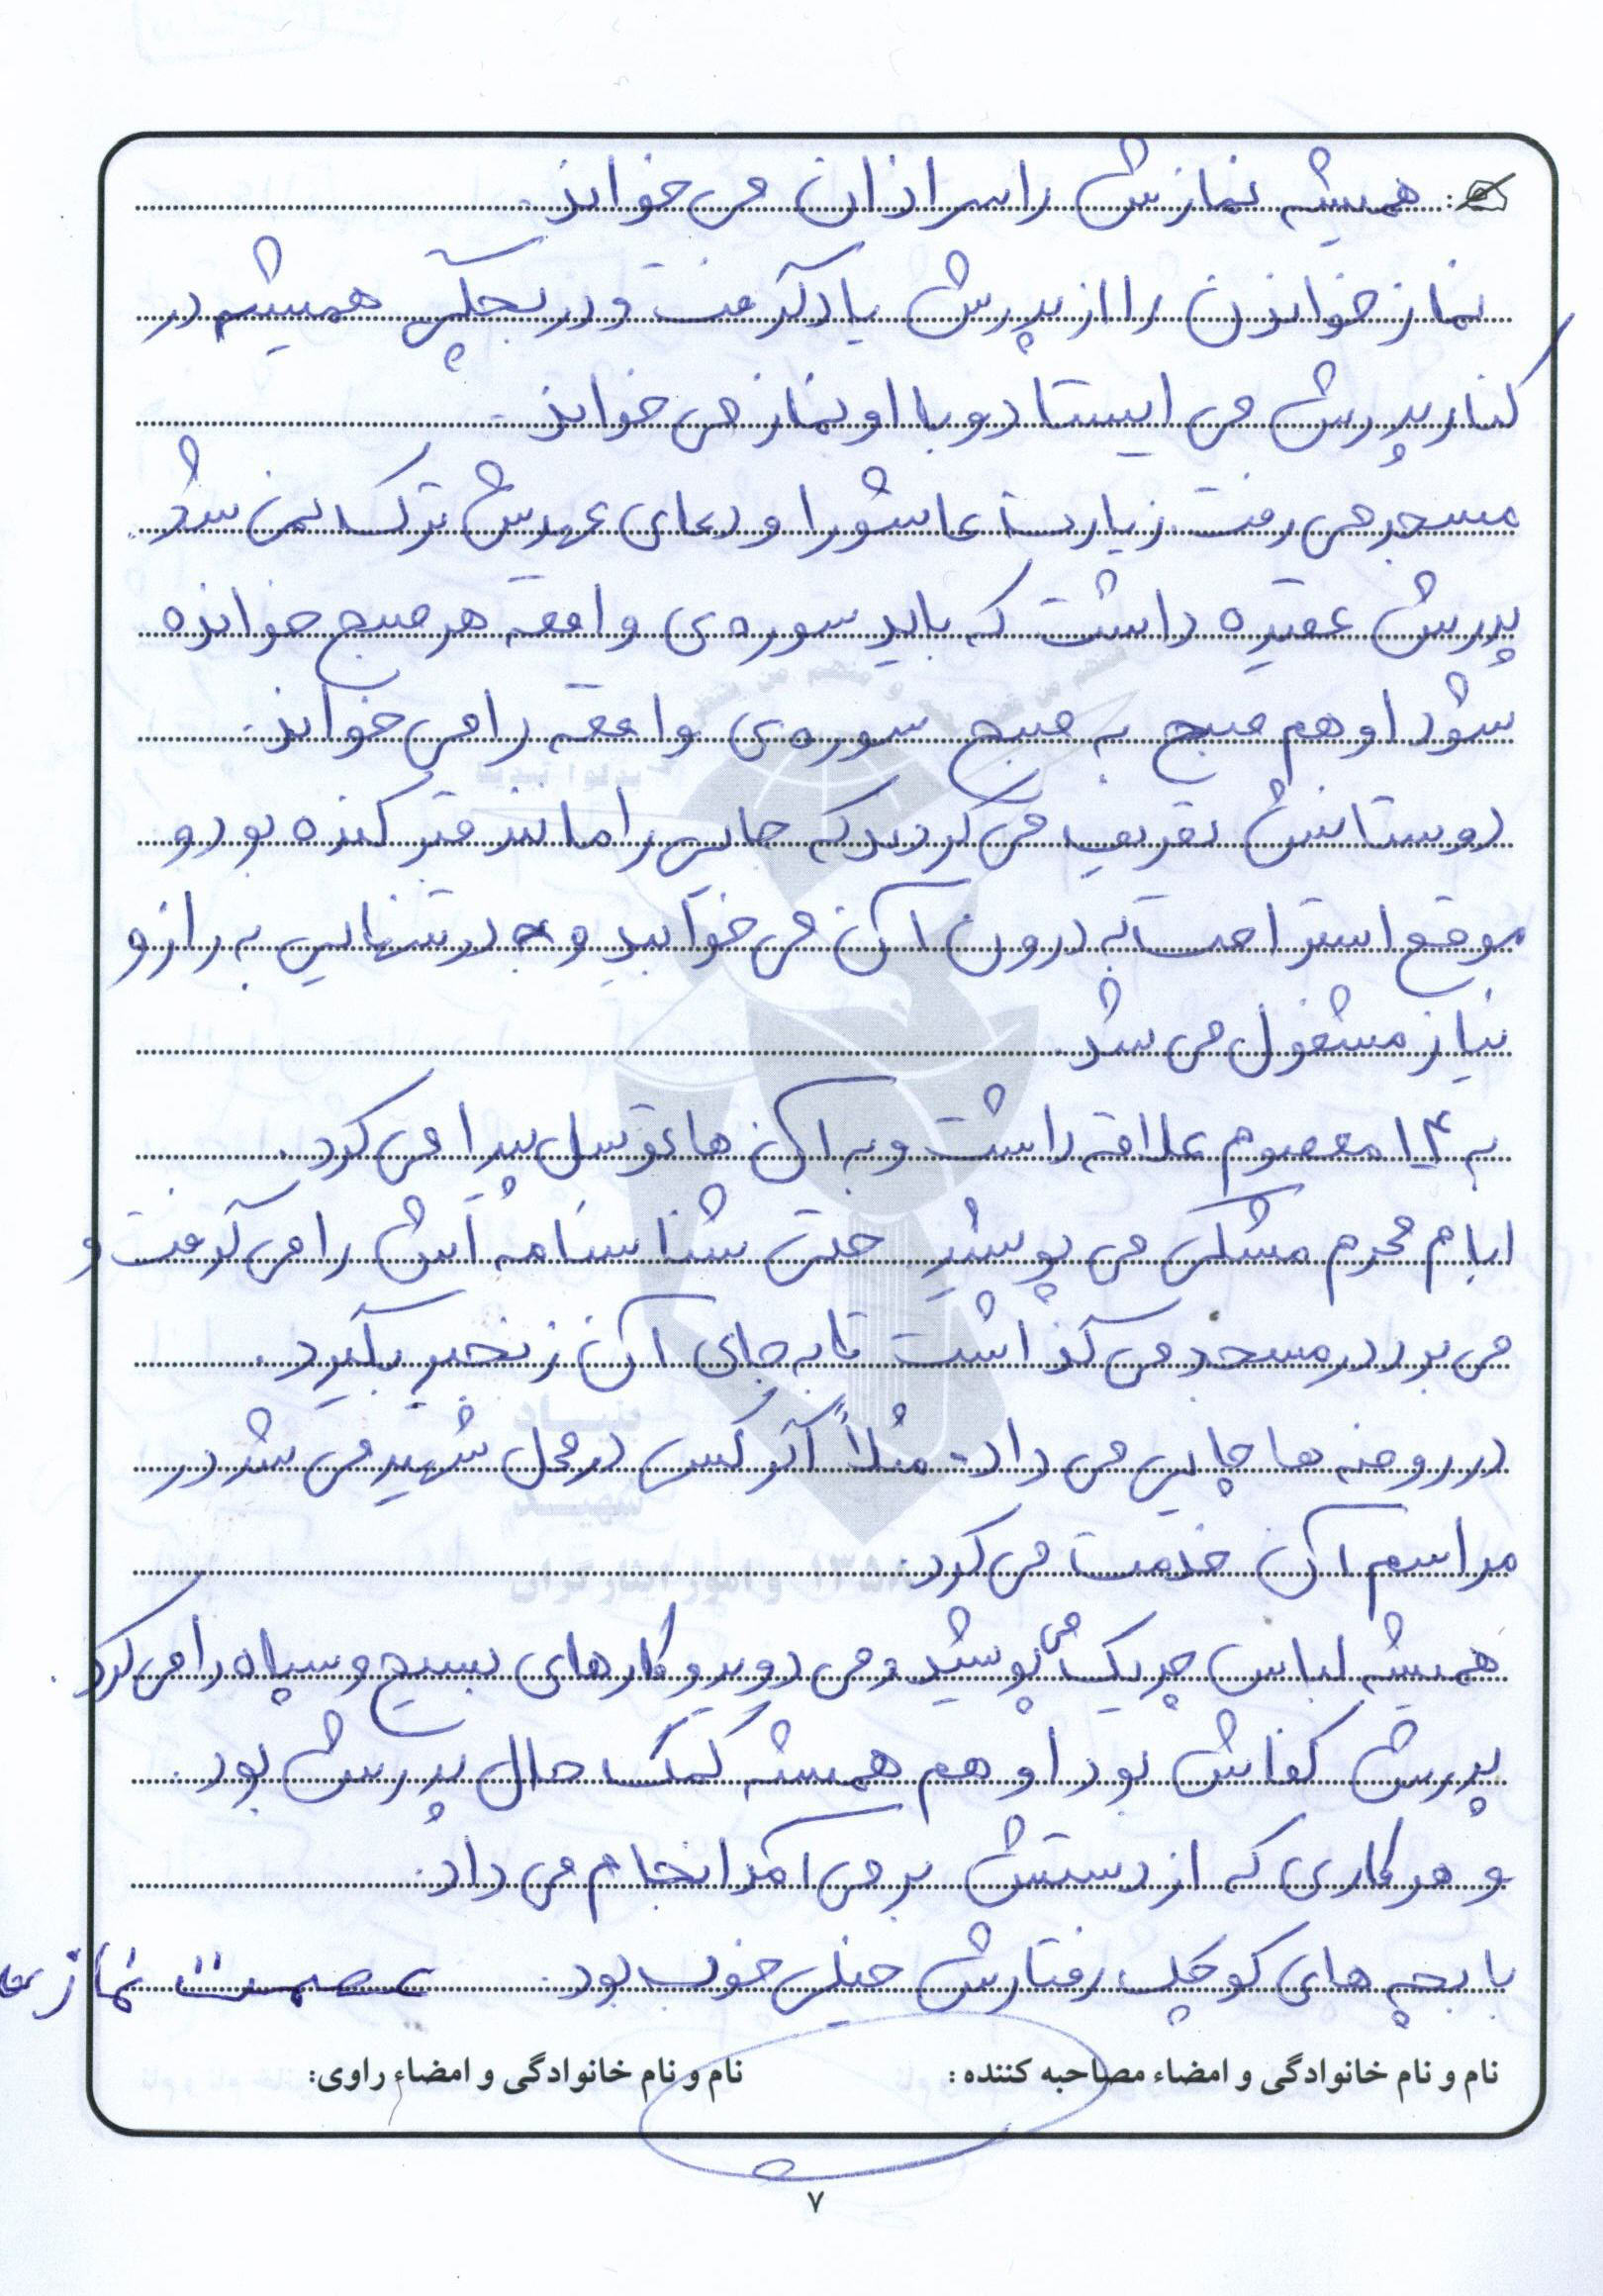 همیشه نمازش را سر اذان می خواند.
نماز خواندن را از پدرش یاد گرفت و در بچگی همیشه در
کنار پدرش می ایستاد و با او نماز می خواند.
مسجد می رفت. زیارت عاشورا و دعای عهدش ترک نمی شد.
پدرش عقیده داشت که باید سوره ی واقعه هر صبح خوانده
شود او هم صبح به صبح سوره ی واقعه را می خواند.
دوستانش تعریف می کردند که جایی را مانند قبر کنده بود و
موقع استراحت به درون آن می خوابید و در تنهایی به راز و
نیاز مشغول می شد.
به ۱۴ معصوم علاقه داشت و به آن ها توسل پیدا می کرد.
ایام محرم مشکی می پوشید حتی شناسنامه اش را می گرفت و
می برد در مسجد می گذاشت تا به جای آن زنجیر بگیرد.
در روضه ها چایی می داد. مثلاً اگر کسی در محل شهید می شد در
مراسم آن خدمت می کرد.
همیشه لباس چریک می پوشید و می دوید و کارهای بسیج و سپاه را می کرد.
پدرش کفاش بود او هم همیشه کمک حال پدرش بود.
و هر کاری که از دستش بر می آمد انجام می داد.
با بچه های کوچک رفتارش خیلی خوب بود. عصمت نماز
نام و نام خانوادگی و امضاء مصاحبه کننده : نام و نام خانوادگی و امضاء راوی:
۷